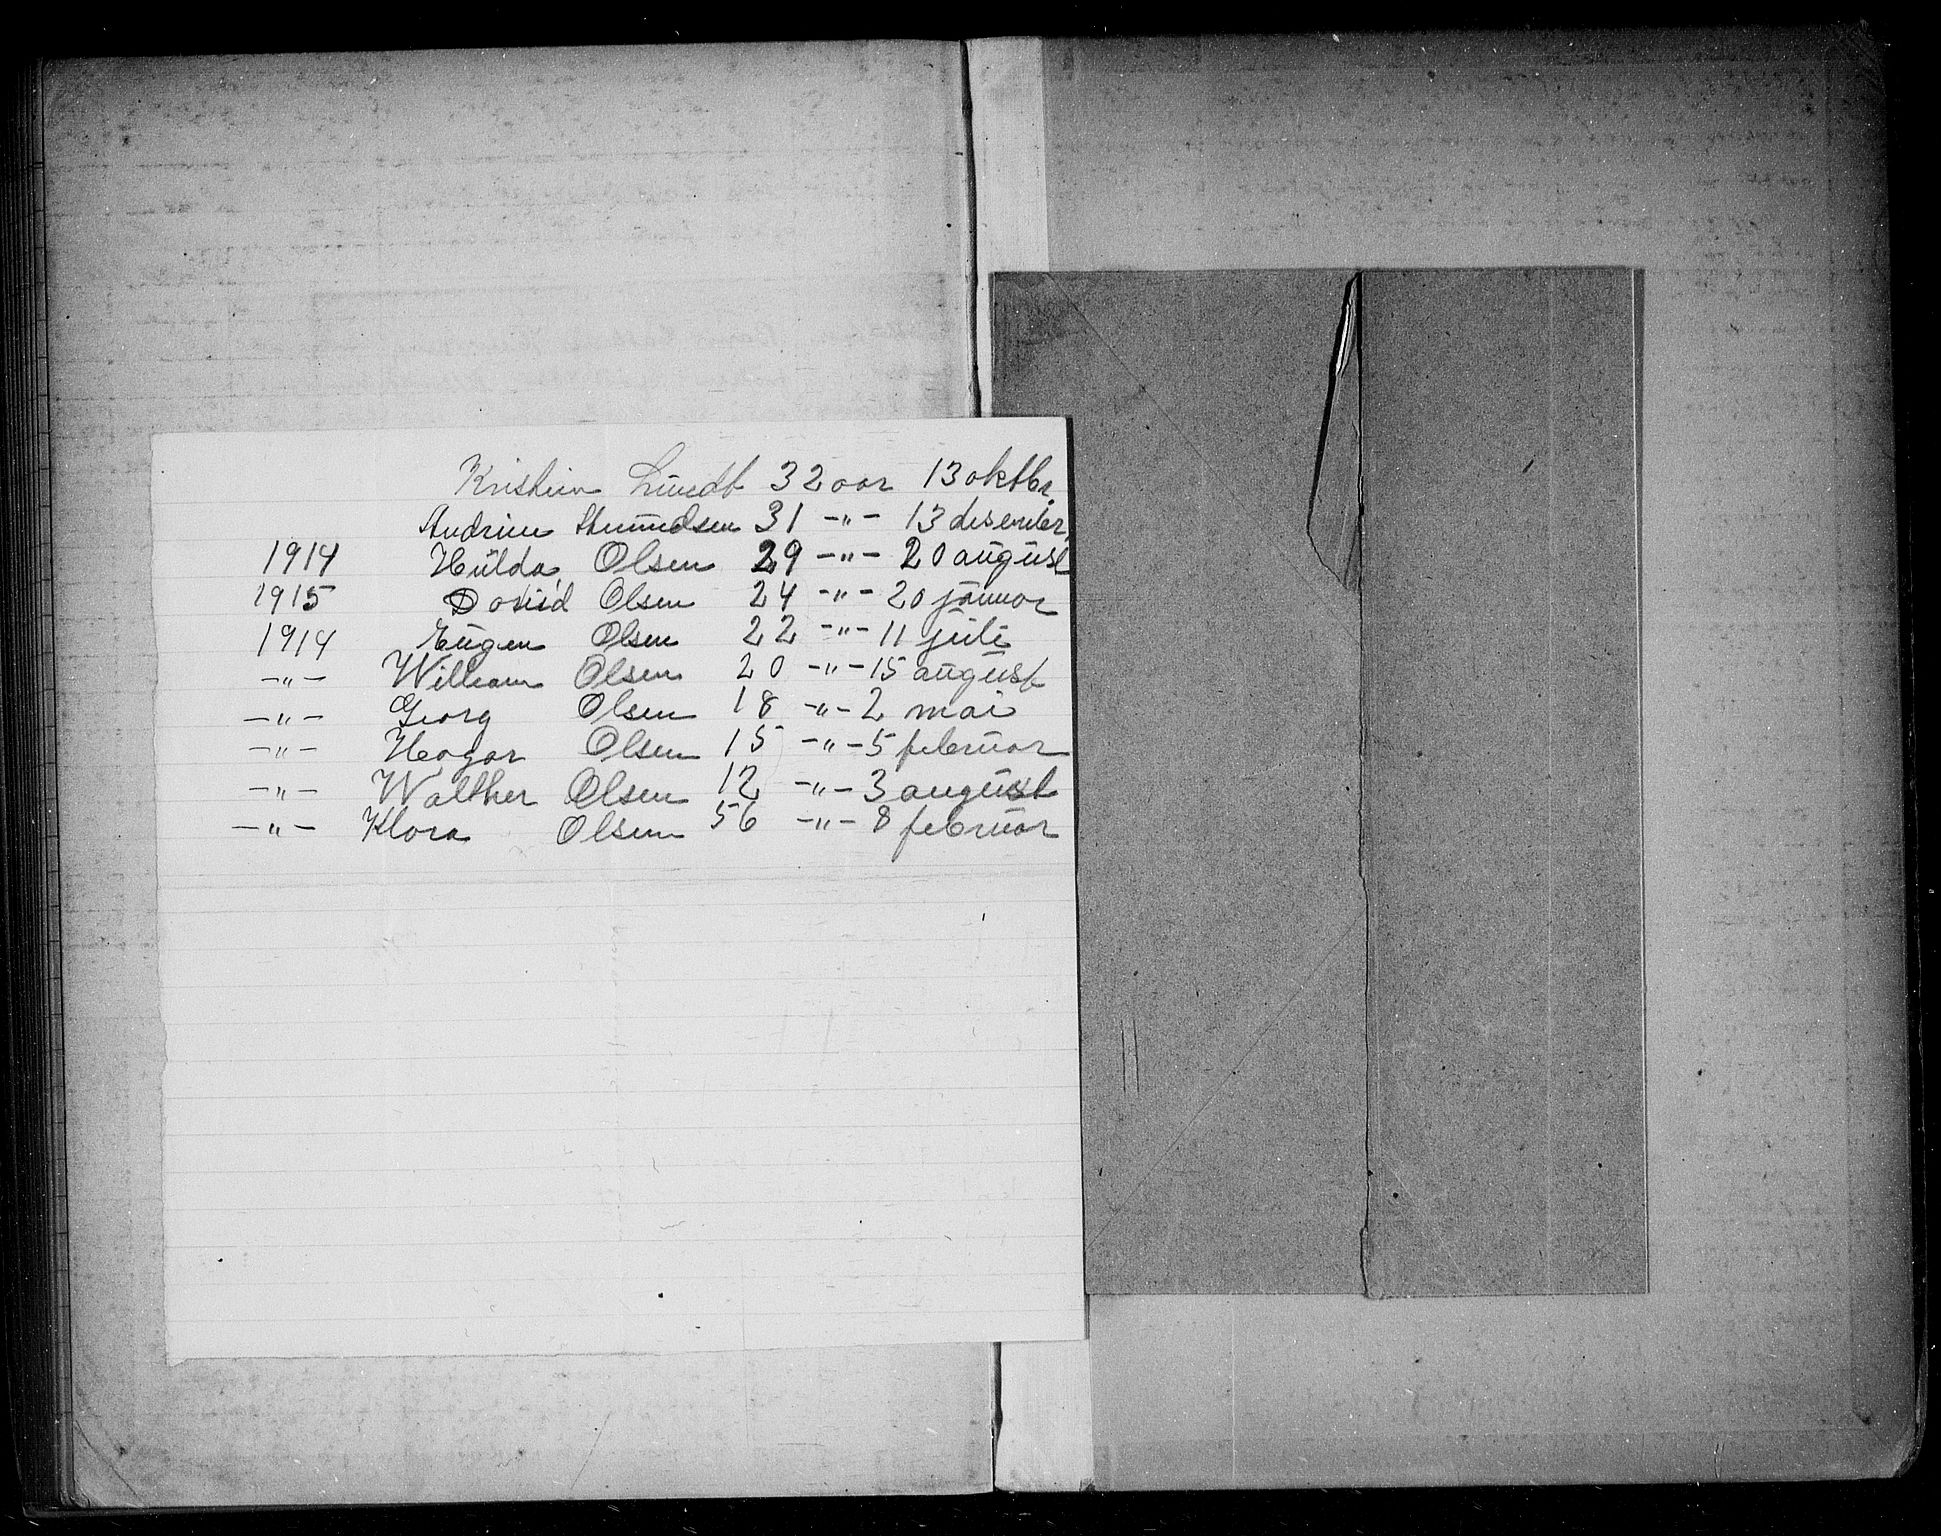 Kristien Lundt 32 aar 13 oktbr.
Andrine Amundsen 31 -"- 13 desember,
1914 Hulda Olsen 29 -"- 20 august
1915 David Olsen 24 -"- 20 januar
1914 Eugen Olsen 22 -"- 11 juli
-"- William Olsen 20 -"- 15 august
-"- Georg Olsen 18 -"- 2 mai
-"- Hagar Olsen 15 -"- 5 februar
-"- Walther Olsen 12 -"- 3 august
-"- Klara Olsen 56 -"- 8 februar